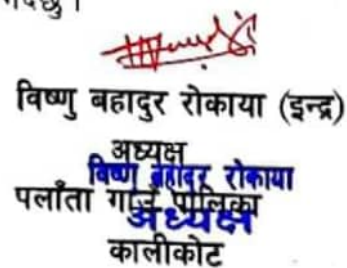 विष्णु बहादुर रोकाया (इन्द्र)
अध्यक्ष
विष्णु बहादुर रोकाया
पलाँता गाउँ पालिका
अध्यक्ष
कालीकोट